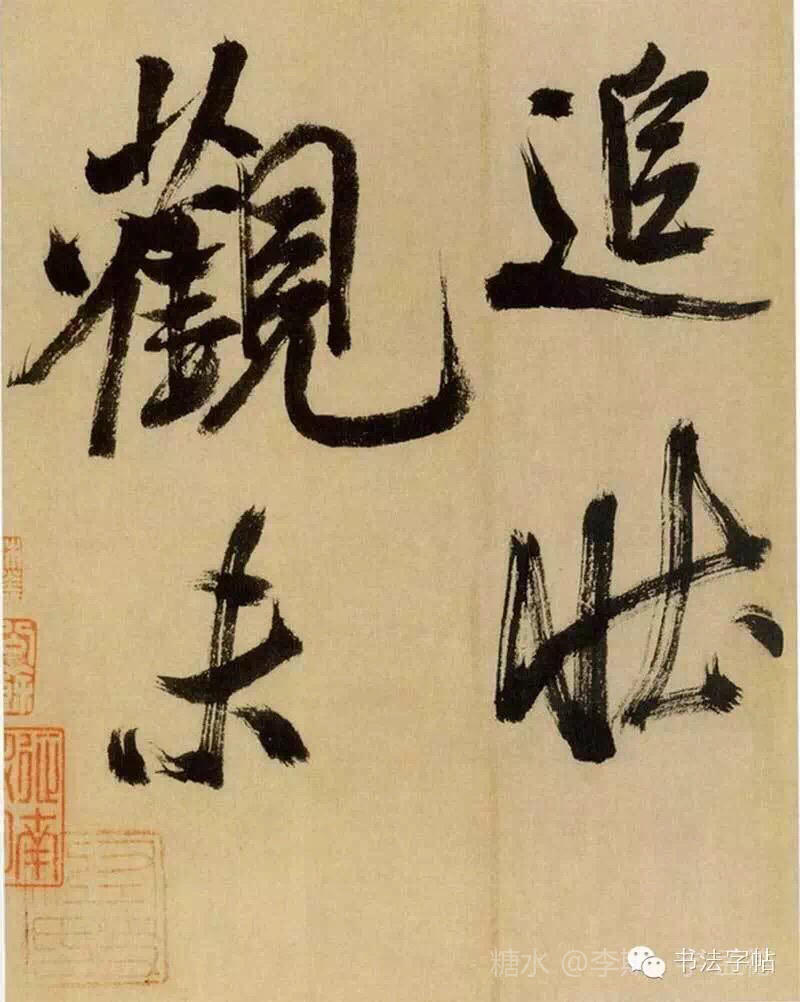 追壯
觀未
糖水 @李
书法字帖